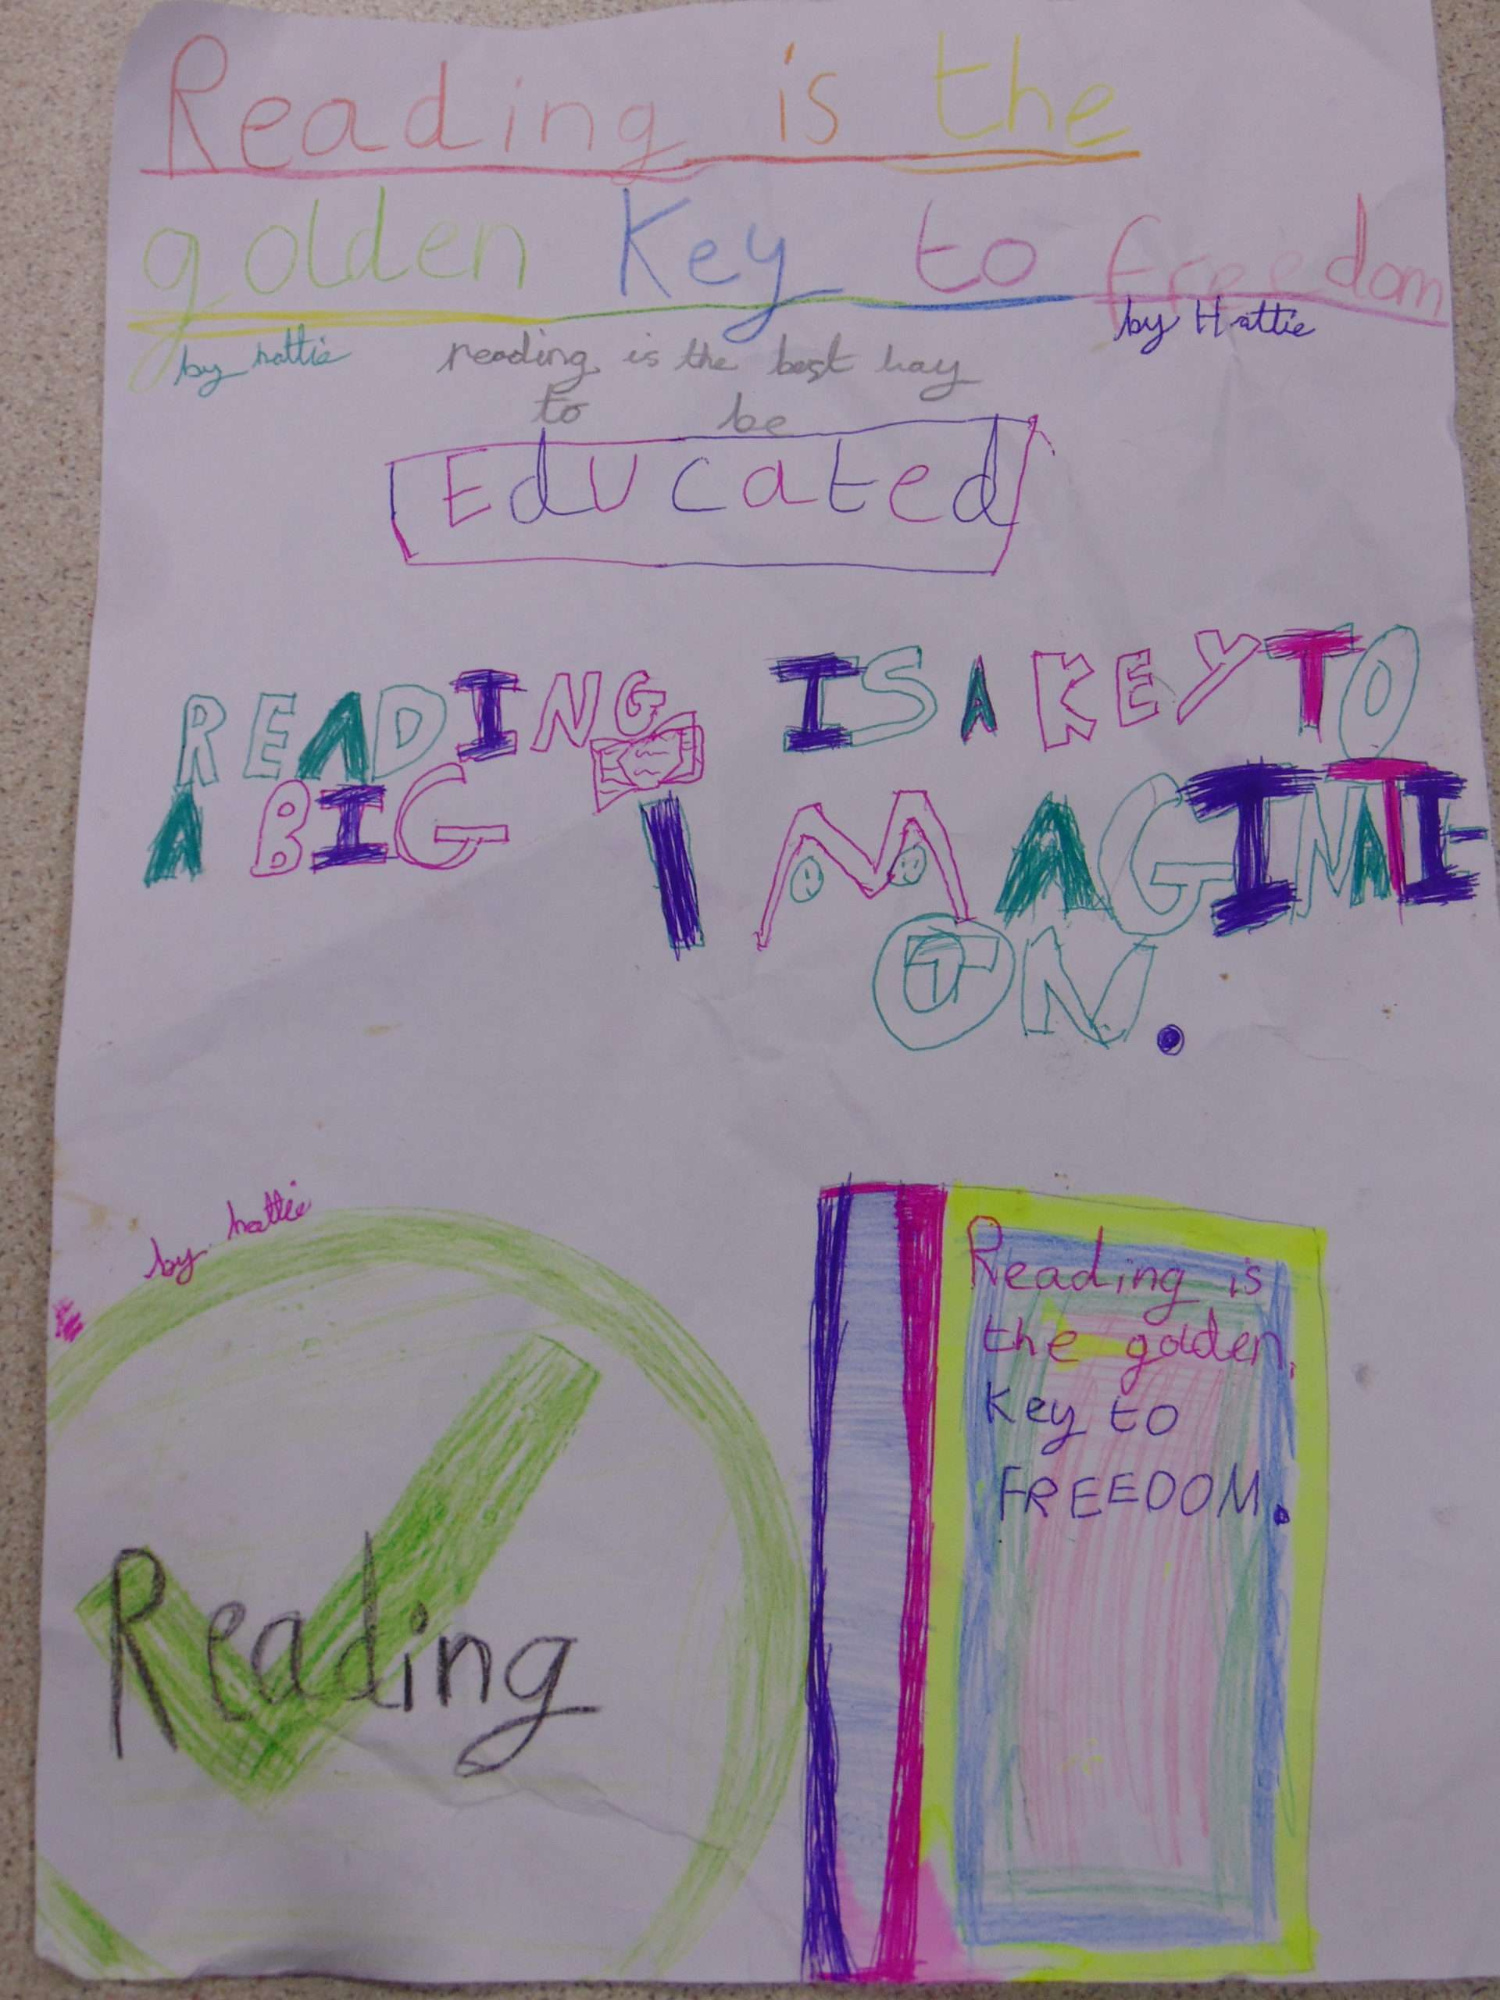 Reading is the
golden Key to freedom
by Hattie
by hattie
reading is the best way
to be
Educated
READING IS A KEY TO
A BIG IMAGINATI-
ON.
by hattie
Reading
Reading is
the golden
Key to
FREEDOM.